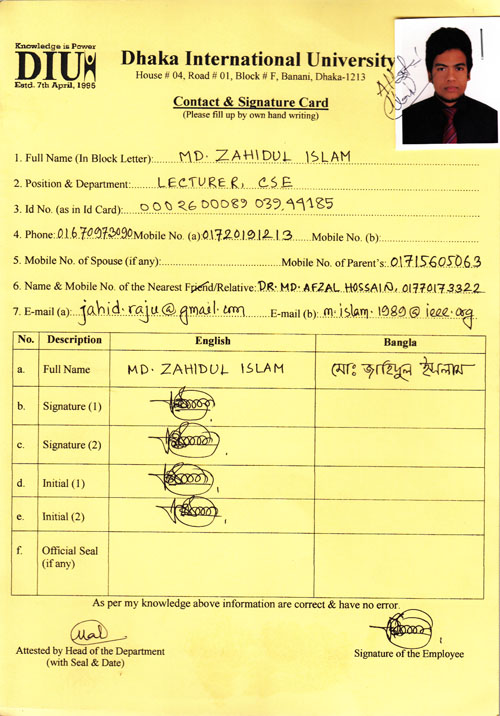 Knowledge is Power
DIU
Estd. 7th April, 1995
Dhaka International University
House # 04, Road # 01, Block # F, Banani, Dhaka-1213
Contact & Signature Card
(Please fill up by own hand writing)
1. Full Name (In Block Letter): MD. ZAHIDUL ISLAM
2. Position & Department: LECTURER, CSE
3. Id No. (as in Id Card): 0002600089 039,44185
4. Phone: 01670973090 Mobile No. (a): 01720191213 Mobile No. (b):
5. Mobile No. of Spouse (if any): Mobile No. of Parent's: 01715605063
6. Name & Mobile No. of the Nearest Friend/Relative: DR. MD. AFZAL HOSSAIN, 01770173322
7. E-mail (a): jahid.raju@gmail.com E-mail (b): m.islam.1989@ieee.org
No. Description English Bangla
a. Full Name MD. ZAHIDUL ISLAM মোঃ জাহিদুল ইসলাম
b. Signature (1)
c. Signature (2)
d. Initial (1)
e. Initial (2)
f. Official Seal
(if any)
As per my knowledge above information are correct & have no error.
Attested by Head of the Department Signature of the Employee
(with Seal & Date)